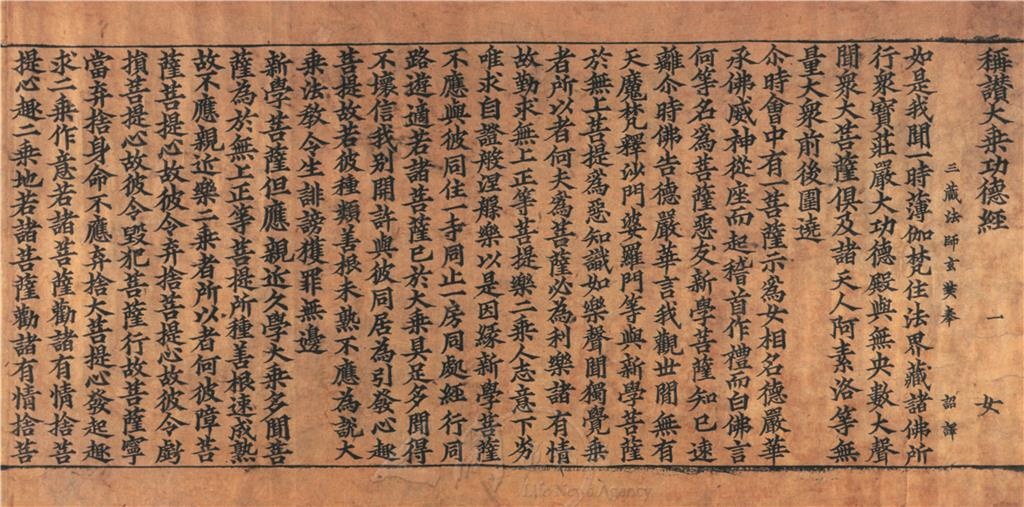 稱讃大乗功德經 一 女
三藏法師玄奘奉 詔譯
如是我聞一時薄伽梵住法界藏諸佛所
行衆寶莊嚴大功德殿與無央數大聲
聞衆大菩薩俱及諸天人阿素洛等無
量大衆前後圍遶
尒時會中有一菩薩示爲女相名德嚴華
承佛威神從座而起稽首作禮而白佛言
何等名爲菩薩惡友新學菩薩知已速
離尒時佛告德嚴華言我觀世閒無有
天魔梵釋沙門婆羅門等與新學菩薩
於無上菩提爲惡知識如樂聲聞獨覺乗
者所以者何夫爲菩薩必為利樂諸有情
故勤求無上正等菩提樂二乗人志意下劣
唯求自證般涅槃樂以是因緣新學菩薩
不應與彼同住一寺同止一房同處經行同
路遊適若諸菩薩已於大乗具足多聞得
不壞信我别開許與彼同居為引發心趣
菩提故若彼種類善根未熟不應為說大
乗法教令生誹謗獲罪無邊
新學菩薩但應親近久學大乗多聞菩
薩為於無上正等菩提所種善根速成熟
故不應親近樂二乗者所以者何彼障菩
薩菩提心故彼令弃捨菩提心故彼令虧
損菩提心故彼令毀犯菩薩行故菩薩寧
當弃捨身命不應弃捨大菩提心發起趣
求二乗作意若諸菩薩勸諸有情捨菩
提心趣二乗地若諸菩薩勸諸有情捨菩
Life News Agency